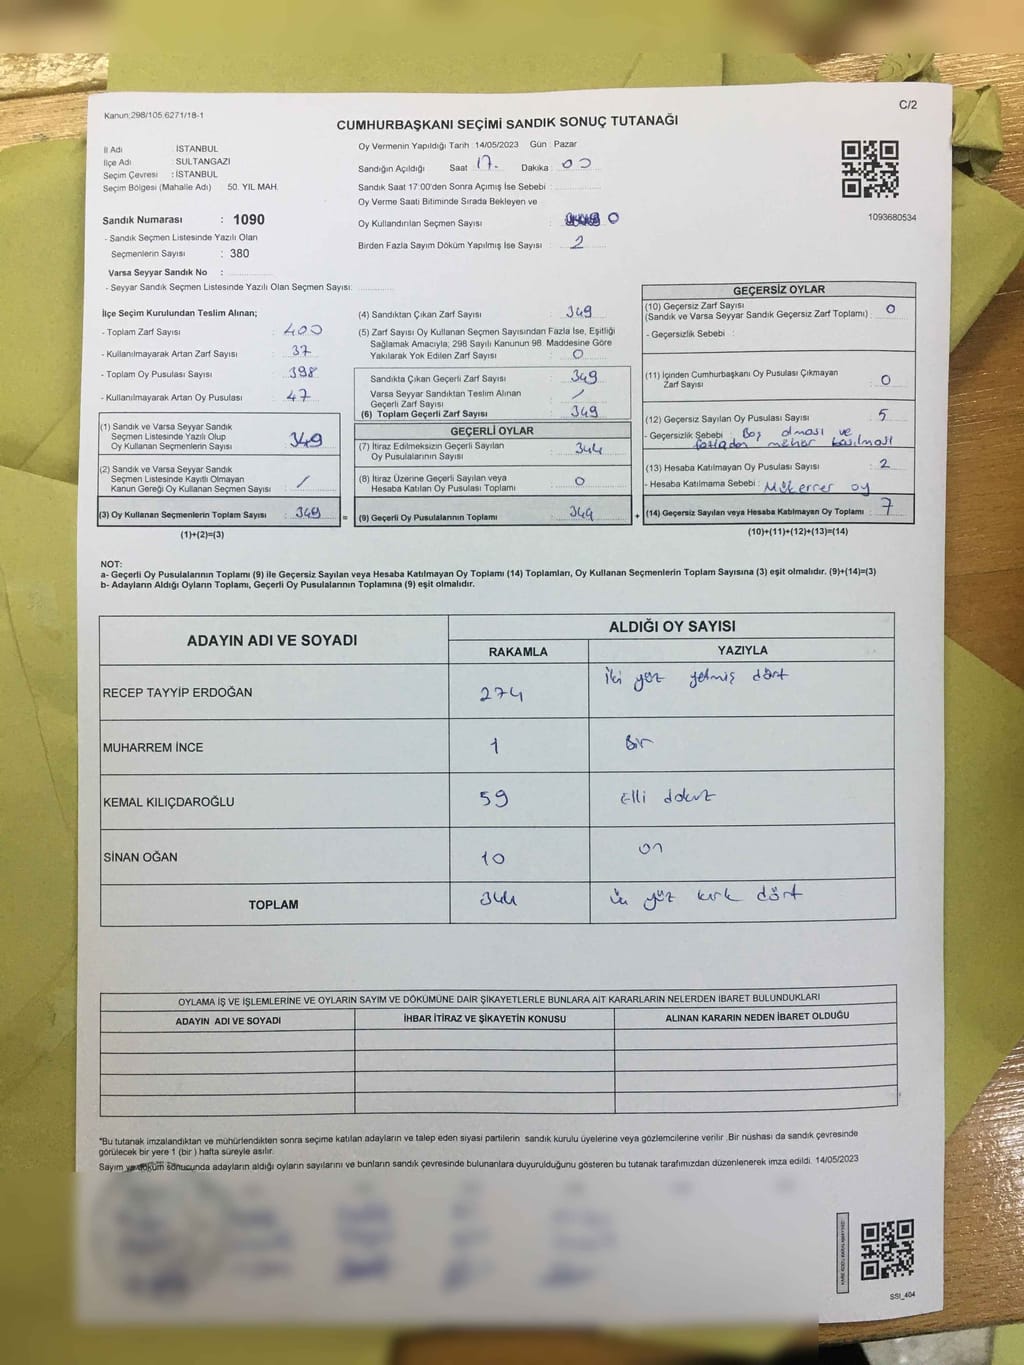 Kanun;298/105.6271/18-1
C/2
CUMHURBAŞKANI SEÇİMİ SANDIK SONUÇ TUTANAĞI
İl Adı : İSTANBUL
İlçe Adı : SULTANGAZI
Seçim Çevresi : İSTANBUL
Seçim Bölgesi (Mahalle Adı) 50. YIL MAH.
Sandık Numarası : 1090
- Sandık Seçmen Listesinde Yazılı Olan
Seçmenlerin Sayısı : 380
Varsa Seyyar Sandık No :
- Seyyar Sandık Seçmen Listesinde Yazılı Olan Seçmen Sayısı:
Oy Vermenin Yapıldığı Tarih : 14/05/2023 Gün : Pazar
Sandığın Açıldığı Saat 17. Dakika : 00
Sandık Saat 17:00'den Sonra Açımış İse Sebebi :
Oy Verme Saati Bitiminde Sırada Bekleyen ve
Oy Kullandırılan Seçmen Sayısı : 0
Birden Fazla Sayım Döküm Yapılmış İse Sayısı : 2
1093680534
İlçe Seçim Kurulundan Teslim Alınan;
- Toplam Zarf Sayısı : 400
- Kullanılmayarak Artan Zarf Sayısı : 37
- Toplam Oy Pusulası Sayısı : 398
- Kullanılmayarak Artan Oy Pusulası : 47
(1) Sandık ve Varsa Seyyar Sandık
Seçmen Listesinde Yazılı Olup
Oy Kullanan Seçmenlerin Sayısı : 349
(2) Sandık ve Varsa Seyyar Sandık
Seçmen Listesinde Kayıtlı Olmayan
Kanun Gereği Oy Kullanan Seçmen Sayısı : /
(3) Oy Kullanan Seçmenlerin Toplam Sayısı : 349
(1)+(2)=(3)
(4) Sandıktan Çıkan Zarf Sayısı : 349
(5) Zarf Sayısı Oy Kullanan Seçmen Sayısından Fazla İse, Eşitliği
Sağlamak Amacıyla; 298 Sayılı Kanunun 98. Maddesine Göre
Yakılarak Yok Edilen Zarf Sayısı : 0
Sandıkta Çıkan Geçerli Zarf Sayısı : 349
Varsa Seyyar Sandıktan Teslim Alınan
Geçerli Zarf Sayısı : /
(6) Toplam Geçerli Zarf Sayısı : 349
GEÇERLİ OYLAR
(7) İtiraz Edilmeksizin Geçerli Sayılan
Oy Pusulalarının Sayısı : 344
(8) İtiraz Üzerine Geçerli Sayılan veya
Hesaba Katılan Oy Pusulası Toplamı : 0
= (9) Geçerli Oy Pusulalarının Toplamı : 344
GEÇERSİZ OYLAR
(10) Geçersiz Zarf Sayısı
(Sandık ve Varsa Seyyar Sandık Geçersiz Zarf Toplamı) : 0
- Geçersizlik Sebebi :
(11) İçinden Cumhurbaşkanı Oy Pusulası Çıkmayan
Zarf Sayısı : 0
(12) Geçersiz Sayılan Oy Pusulası Sayısı : 5
- Geçersizlik Sebebi : Boş olması ve
fazladan mühür basılması
(13) Hesaba Katılmayan Oy Pusulası Sayısı : 2
- Hesaba Katılmama Sebebi : Mükerrer oy
+ (14) Geçersiz Sayılan veya Hesaba Katılmayan Oy Toplamı : 7
(10)+(11)+(12)+(13)=(14)
NOT:
a- Geçerli Oy Pusulalarının Toplamı (9) ile Geçersiz Sayılan veya Hesaba Katılmayan Oy Toplamı (14) Toplamları, Oy Kullanan Seçmenlerin Toplam Sayısına (3) eşit olmalıdır. (9)+(14)=(3)
b- Adayların Aldığı Oyların Toplamı, Geçerli Oy Pusulalarının Toplamına (9) eşit olmalıdır.
ADAYIN ADI VE SOYADI
ALDIĞI OY SAYISI
RAKAMLA YAZIYLA
RECEP TAYYİP ERDOĞAN 274 iki yüz yetmiş dört
MUHARREM İNCE 1 Bir
KEMAL KILIÇDAROĞLU 59 Elli dokuz
SİNAN OĞAN 10 on
TOPLAM 344 üç yüz kırk dört
OYLAMA İŞ VE İŞLEMLERİNE VE OYLARIN SAYIM VE DÖKÜMÜNE DAİR ŞİKAYETLERLE BUNLARA AİT KARARLARIN NELERDEN İBARET BULUNDUKLARI
ADAYIN ADI VE SOYADI İHBAR İTİRAZ VE ŞİKAYETİN KONUSU ALINAN KARARIN NEDEN İBARET OLDUĞU
*Bu tutanak imzalandıktan ve mühürlendikten sonra seçime katılan adayların ve talep eden siyasi partilerin sandık kurulu üyelerine veya gözlemcilerine verilir .Bir nüshası da sandık çevresinde
görülecek bir yere 1 (bir ) hafta süreyle asılır.
Sayım ve döküm sonucunda adayların aldığı oyların sayılarını ve bunların sandık çevresinde bulunanlara duyurulduğunu gösteren bu tutanak tarafımızdan düzenlenerek imza edildi. 14/05/2023
SSI_404